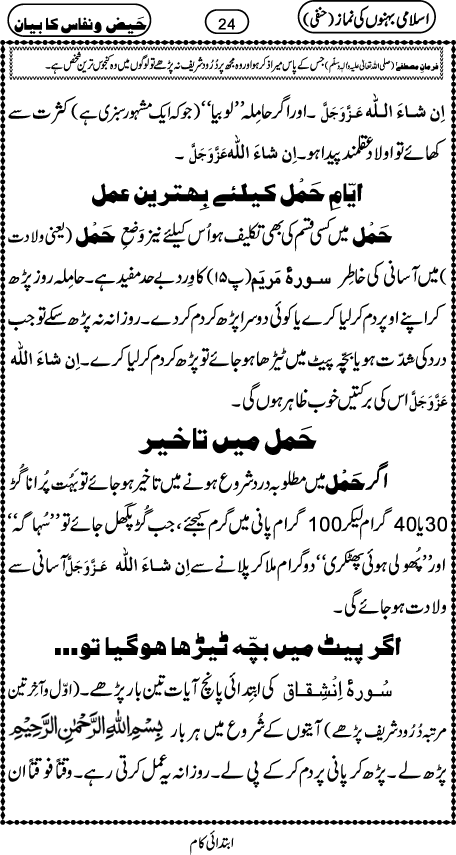 اسلامی بہنوں کی نماز (حنفی)
24
حیض و نفاس کا بیان
فرمانِ مصطفےٰ (صلی اللہ تعالیٰ علیہ واٰلہ وسلم) جس کے پاس میرا ذکر ہو اور وہ مجھ پر دُرُود شریف نہ پڑھے تو لوگوں میں وہ کنجوس ترین شخص ہے۔
اِن شاءَ اللہ عَزَّوَجَلَّ ۔ اور اگر حامِلہ ’’لوبیا‘‘ (جو کہ ایک مشہور سبزی ہے) کثرت سے
کھائے تو اولاد عقلمند پیدا ہو۔ اِن شاءَ اللہ عَزَّوَجَلَّ ۔
ایّامِ حَمْل کیلئے بہترین عمل
حَمْل میں کسی قسم کی بھی تکلیف ہو اُس کیلئے نیز وَضْعِ حَمْل (یعنی ولادت
) میں آسانی کی خاطِر سورۂ مَریَم (پ۱۵) کا وِرد بے حد مفید ہے۔ حامِلہ روز پڑھ
کر اپنے اوپر دم کر لیا کرے یا کوئی دوسرا پڑھ کر دم کر دے۔ روزانہ نہ پڑھ سکے تو جب
درد کی شدّت ہو یا بچّہ پیٹ میں ٹیڑھا ہو جائے تو پڑھ کر دم کر لیا کرے۔ اِن شاءَ اللہ
عَزَّوَجَلَّ اس کی برکتیں خوب ظاہر ہوں گی۔
حَمل میں تاخیر
اگر حَمْل میں مطلوبہ درد شروع ہونے میں تاخیر ہو جائے تو بَہُت پرانا گُڑ
30 یا 40 گرام لیکر 100 گرام پانی میں گرم کیجئے، جب گُڑ پگھل جائے تو ’’سُہاگہ‘‘
اور ’’پُھولی ہوئی پھٹکری‘‘ دو گرام ملا کر پلانے سے اِن شاءَ اللہ عَزَّوَجَلَّ آسانی سے
ولادت ہو جائے گی۔
اگر پیٹ میں بچّہ ٹیڑھا ہو گیا تو...
سُورۂ اِنْشِقَاق کی ابتدائی پانچ آیات تین بار پڑھے۔ (اوّل و آخر تین
مرتبہ دُرُود شریف پڑھے) آیتوں کے شُروع میں ہر بار بِسْمِ اللہِ الرَّحْمٰنِ الرَّحِیْمِ
پڑھ لے۔ پڑھ کر پانی پر دم کر کے پی لے۔ روزانہ یہ عمل کرتی رہے۔ وقتاً فوقتاً ان
ابتدائی کام